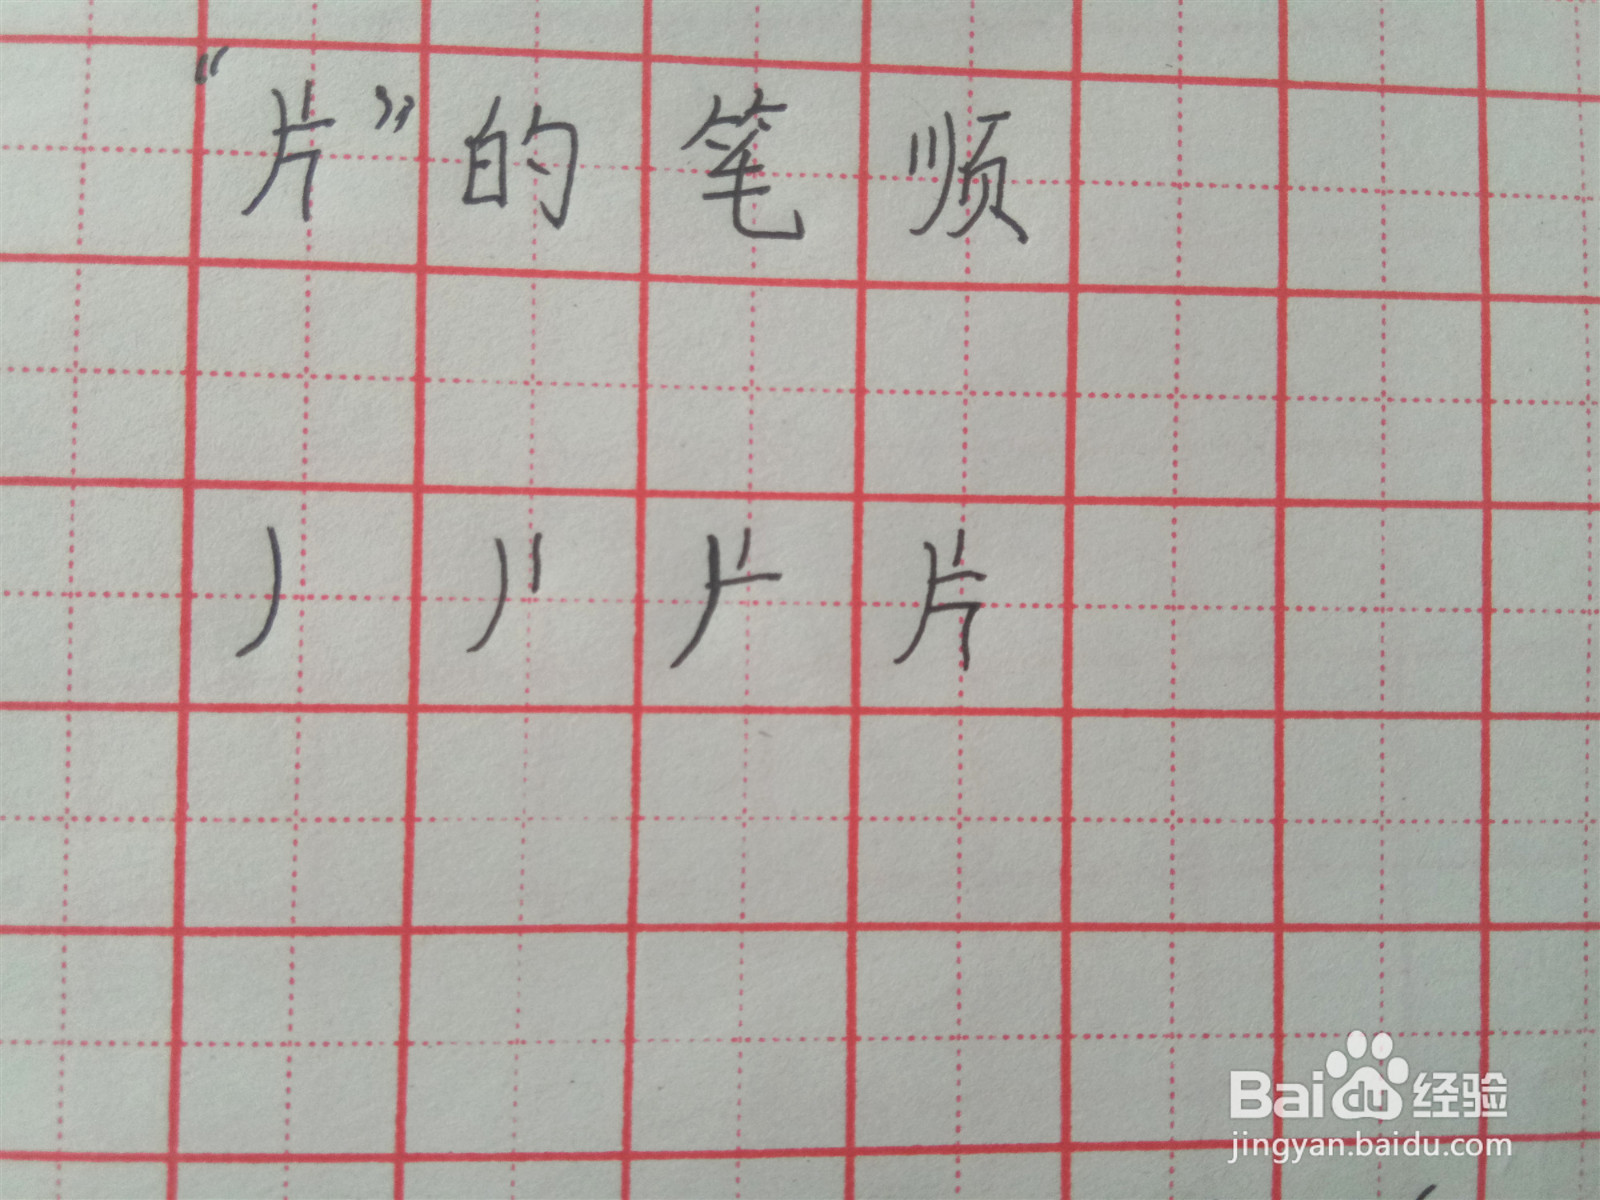 “片”的笔顺
丿 片
Bai du 经验
jingyan.baidu.com